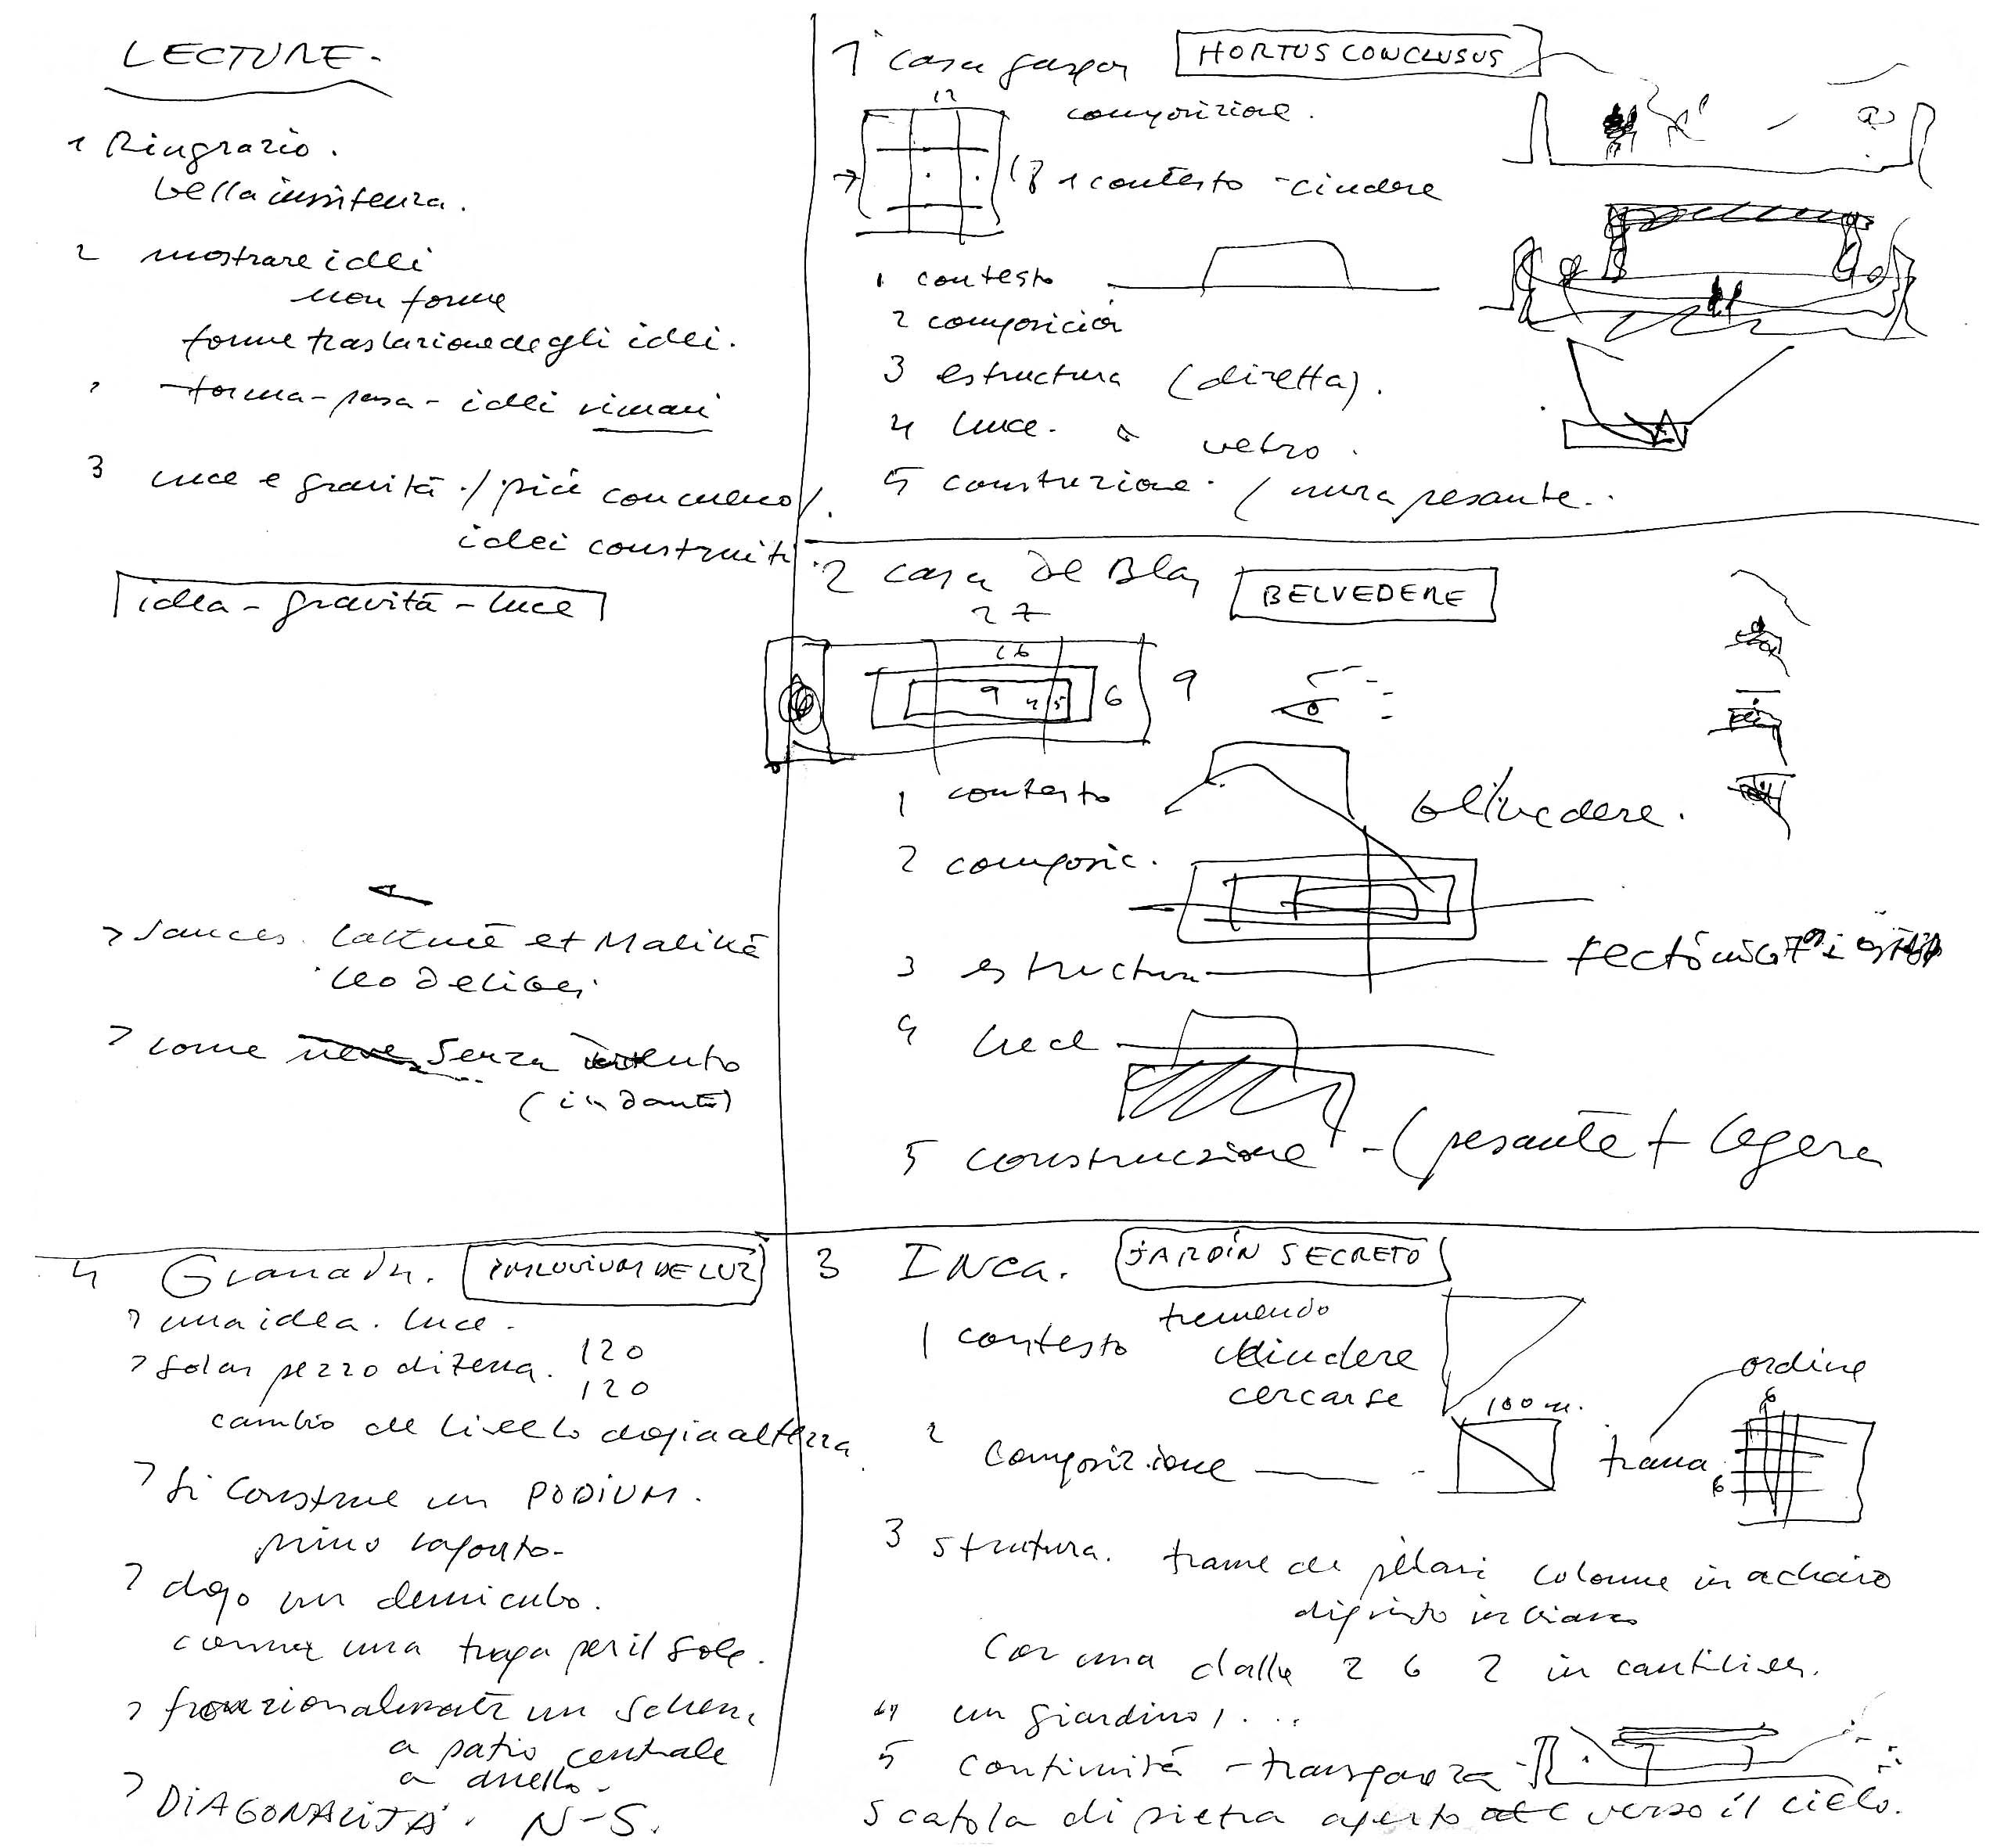 LECTURE-
1 Ringrazio.
bella insistenza.
2 mostrare idei
non forme
forme traslazione degli idei.
idei
3 luce e gravità / più con meno /
idei construiti
idea - gravità - luce
Lakmé et Malikà
Leo Delibes
come neve senza vento
(in dante)
1 casa gaspar HORTUS CONCLUSUS
12
composizione.
18 1 contesto - ciudere
1 contesto
2 composicion
3 estructura (diretta).
4 luce. vetro.
5 construzione. / mura pesante.
2 casa De Blas BELVEDERE
27
9
9 4/5 6
1 contesto
belvedere.
2 composic.
3 estructura
4 luce
5 construczione - (pesante + legera
3 INca. JARDÍN SECRETO
1 contesto tremendo
chiudere
cercarse
100 m.
ordine
6
2 composizione
trama
6
3 strutura. trame de pilari colonne in achaio
dipinto in bianco
con una dalla 2 6 2 in cantiliver.
4 un giardino, ...
5 continuità - transparenza
scatola di pietra aperto al verso il cielo.
4 Granada. IMPLUVIUM DE LUZ
> una idea. luce.
> Solar pezzo di terra. 120
120
cambio de livello dopia altezza
> si construe un PODIUM.
primo
> dopo un demicubo.
comme una trapa per il sole.
un schema
a patio centrale
a anello.
> DIAGONALITÁ. N-S.